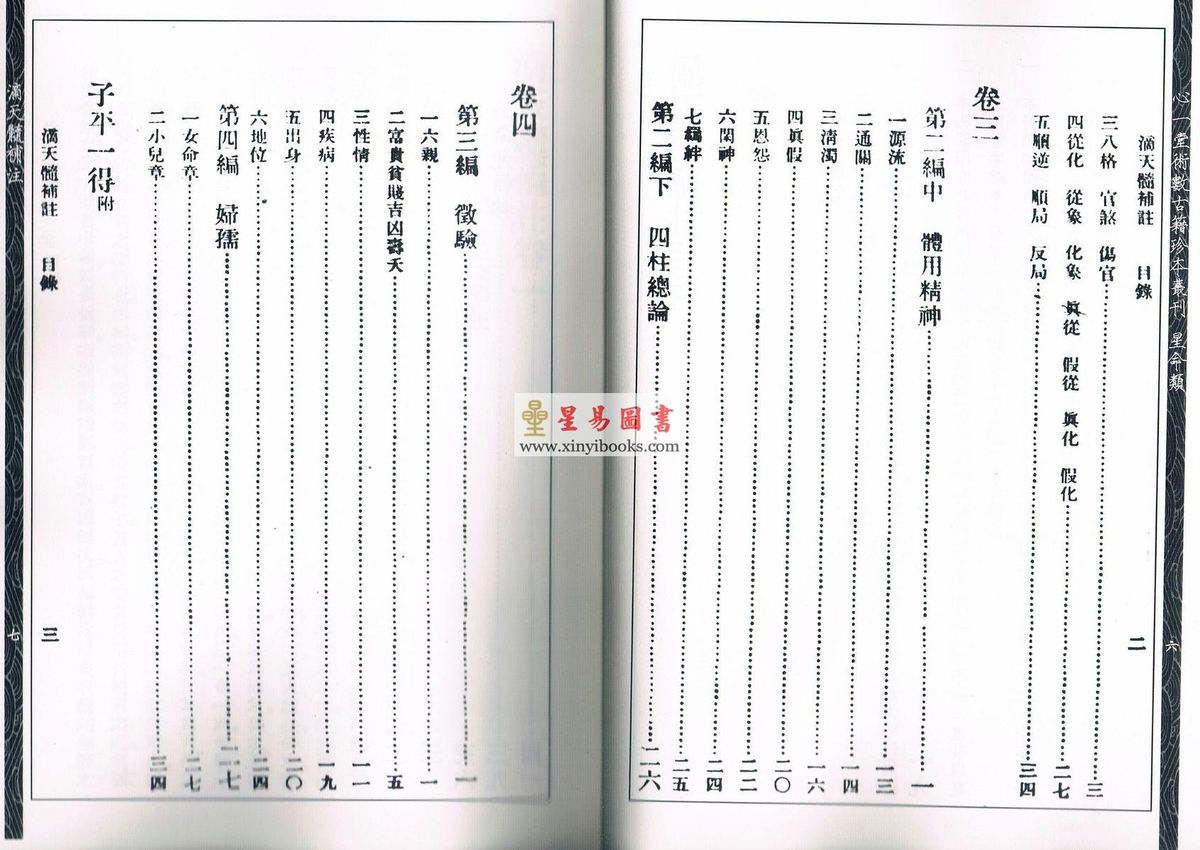 心一堂術數古籍珍本叢刊 星命類
六
滴天髓補註 目錄
二
三八格 官煞 傷官 三
四從化 從象 化象 眞從 假從 眞化 假化 二七
五順逆 順局 反局 三四
卷三
第二編中 體用精神 一
一源流 一三
二通關 一四
三淸濁 一六
四眞假 二〇
五恩怨 二二
六閑神 二四
七羈絆 二五
第二編下 四柱總論 二六
卷四
第三編 徵驗 一
一六親 一
二富貴貧賤吉凶壽夭 五
三性情 一一
四疾病 一九
五出身 二〇
六地位 二四
第四編 婦孺 二七
一女命章 二七
二小兒章 三四
子平一得附
滴天髓補註 目錄
三
滴天髓補註
七
星易圖書
www.xinyibooks.com